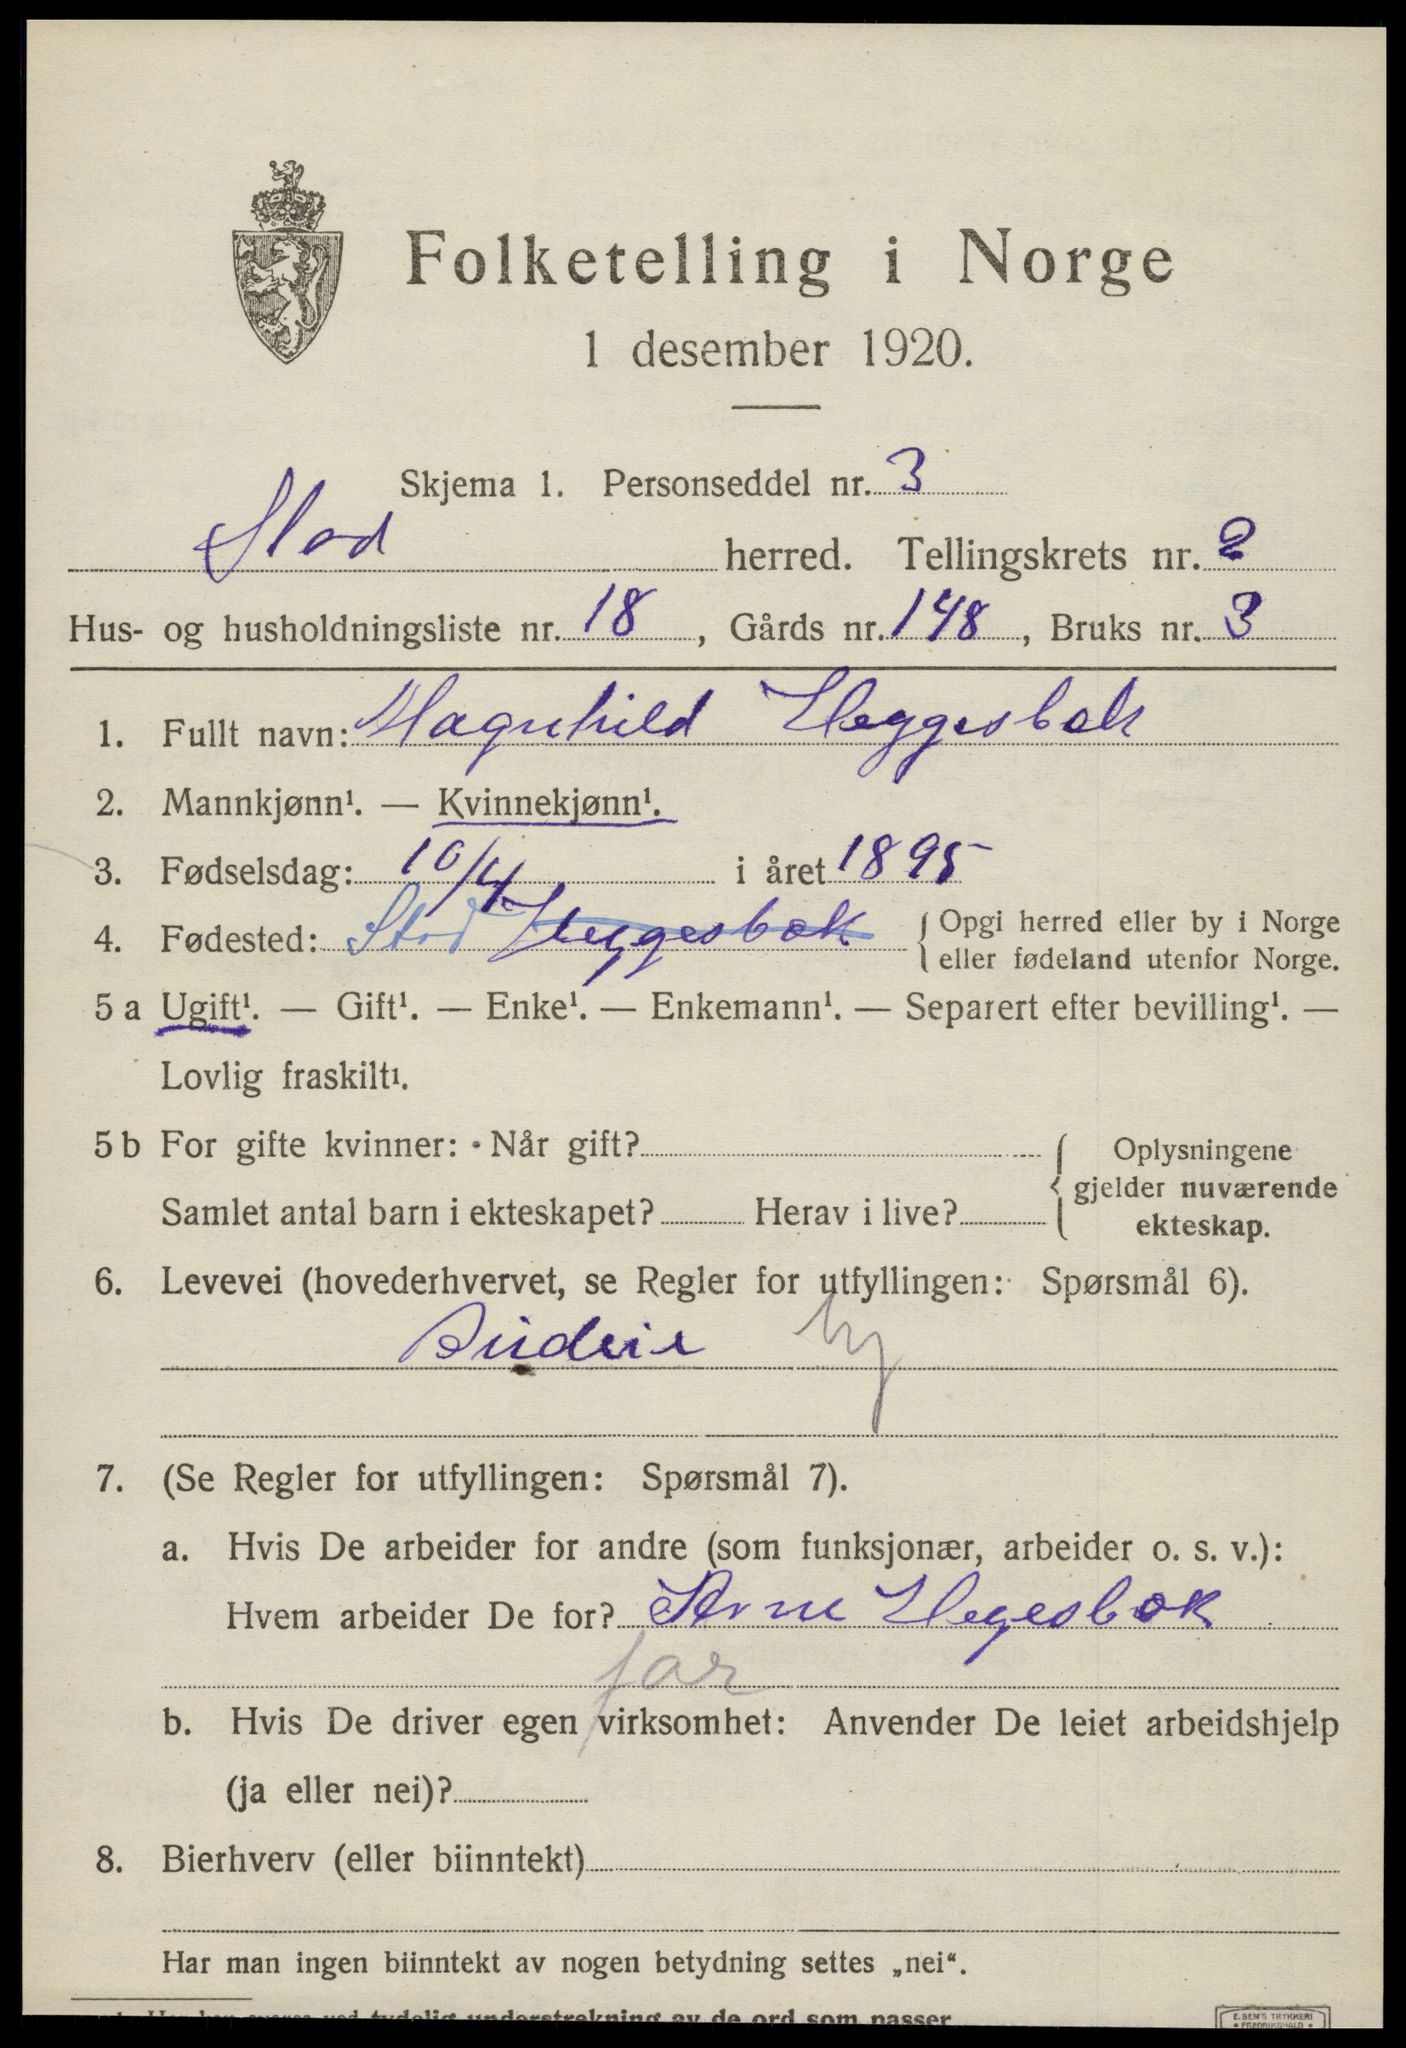 Folketelling i Norge
1 desember 1920.
Skjema 1. Personseddel nr. 3
Stod herred. Tellingskrets nr. 2
Hus- og husholdningsliste nr. 18, Gårds nr. 148, Bruks nr. 3
1. Fullt navn: Magnhild Heggesbøk
2. Mannkjønn¹. — Kvinnekjønn¹.
3. Fødselsdag: 10/4 i året 1895
4. Fødested: Stod Heggesbøk { Opgi herred eller by i Norge
eller fødeland utenfor Norge.
5 a Ugift¹. — Gift¹. — Enke¹. — Enkemann¹. — Separert efter bevilling¹. —
Lovlig fraskilt¹.
5 b For gifte kvinner: Når gift? { Oplysningene
gjelder nuværende
Samlet antal barn i ekteskapet? Herav i live? ekteskap.
6. Levevei (hovederhvervet, se Regler for utfyllingen: Spørsmål 6).
Budeie
7. (Se Regler for utfyllingen: Spørsmål 7).
a. Hvis De arbeider for andre (som funksjonær, arbeider o. s. v.):
Hvem arbeider De for? Arne Hegesbøk
far
b. Hvis De driver egen virksomhet: Anvender De leiet arbeidshjelp
(ja eller nei)?
8. Bierhverv (eller biinntekt)
Har man ingen biinntekt av nogen betydning settes „nei“.
tydelig understrekning av de ord som passer
E. SEM'S TRYKKERI
FREDRIKSHALD